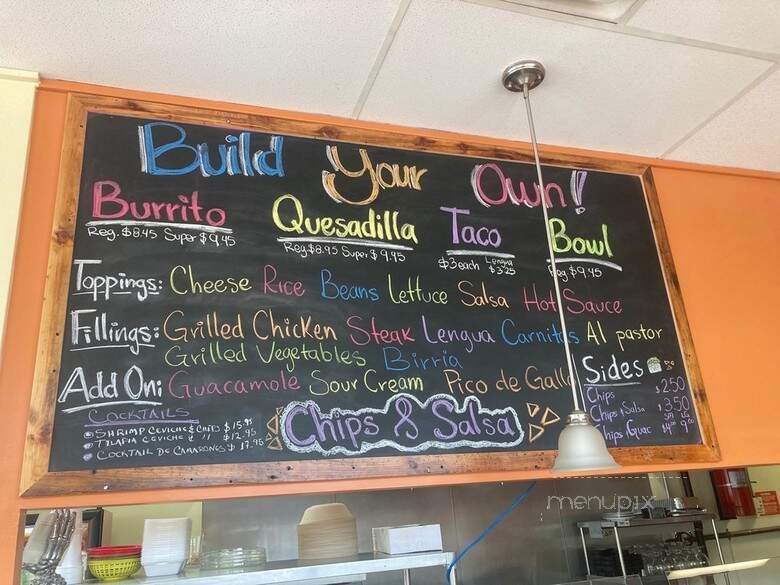 Build Your Own!
Burrito Quesadilla Taco Bowl
Reg. $8.45 Super $9.45 Reg $8.95 Super $9.95 $3 each Lengua $3.25 Reg $9.45
Toppings: Cheese Rice Beans Lettuce Salsa Hot Sauce
Fillings: Grilled Chicken Steak Lengua Carnitas Al pastor
Grilled Vegetables Birria
Add On: Guacamole Sour Cream Pico de Gallo
Sides
Chips $2.50
Chips & Salsa $3.50
SM LG
Chips & Guac $4.00 9.00
COCKTAILS
SHRIMP CEVICHE & CHIPS $15.95
TILAPIA CEVICHE & " $12.95
COCKTAIL DE CAMARONES $17.95
Chips & Salsa
menupix